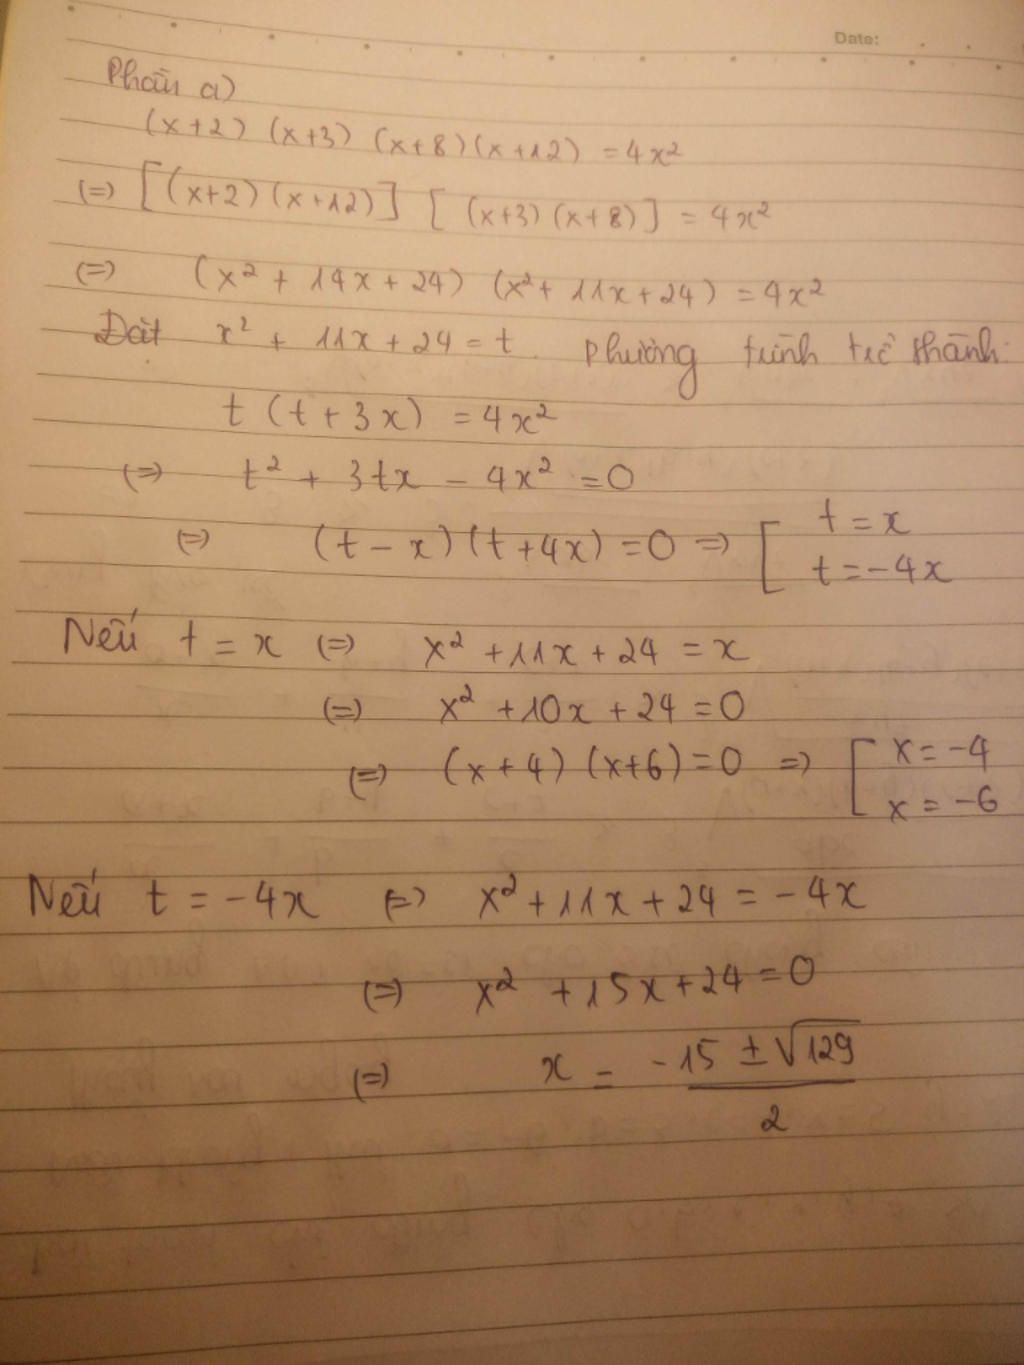 Date:
Phần a)
(x+2) (x+3) (x+8) (x+12) = 4x²
(=) [(x+2) (x+12)] [(x+3) (x+8)] = 4x²
(=) (x² + 14x + 24) (x² + 11x + 24) = 4x²
Đặt x² + 11x + 24 = t. Phương trình trở thành:
t (t + 3x) = 4x²
(=) t² + 3tx - 4x² = 0
(=) (t - x) (t + 4x) = 0 => [ t = x
t = -4x
Nếu t = x (=) x² + 11x + 24 = x
(=) x² + 10x + 24 = 0
(=) (x + 4) (x+6) = 0 => [ x = -4
x = -6
Nếu t = -4x (=) x² + 11x + 24 = -4x
(=) x² + 15x + 24 = 0
(=) x = (-15 ± √129) / 2